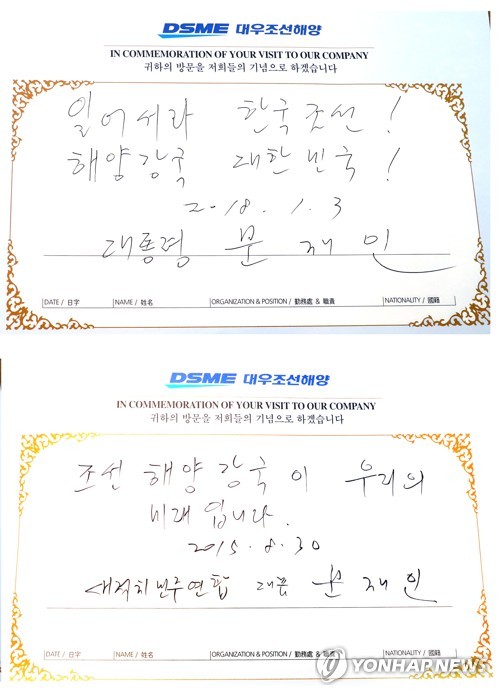 DSME 대우조선해양
IN COMMEMORATION OF YOUR VISIT TO OUR COMPANY
귀하의 방문을 저희들의 기념으로 하겠습니다
일어서라 한국조선!
해양강국 대한민국!
2018. 1. 3
대통령 문재인
DATE / 日字 NAME / 姓名 ORGANIZATION & POSITION / 勤務處 & 職責 NATIONALITY / 國籍
DSME 대우조선해양
IN COMMEMORATION OF YOUR VISIT TO OUR COMPANY
귀하의 방문을 저희들의 기념으로 하겠습니다
조선 해양 강국이 우리의
미래입니다.
2015. 8. 30
새정치민주연합 대표 문재인
DATE / 日字 NAME / 姓名 ORGANIZATION & POSITION / 勤務處 & 職責 NATIONALITY / 國籍
YONHAPNEWS